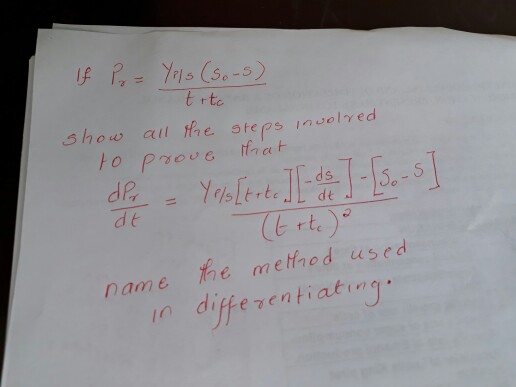 If Pr = YP/S (So-S)
t+tc
show all the steps involved
to prove that
dPr = YP/S[t+tc][-ds] - [So-S]
dt dt
(t+tc)²
name the method used
in differentiating.